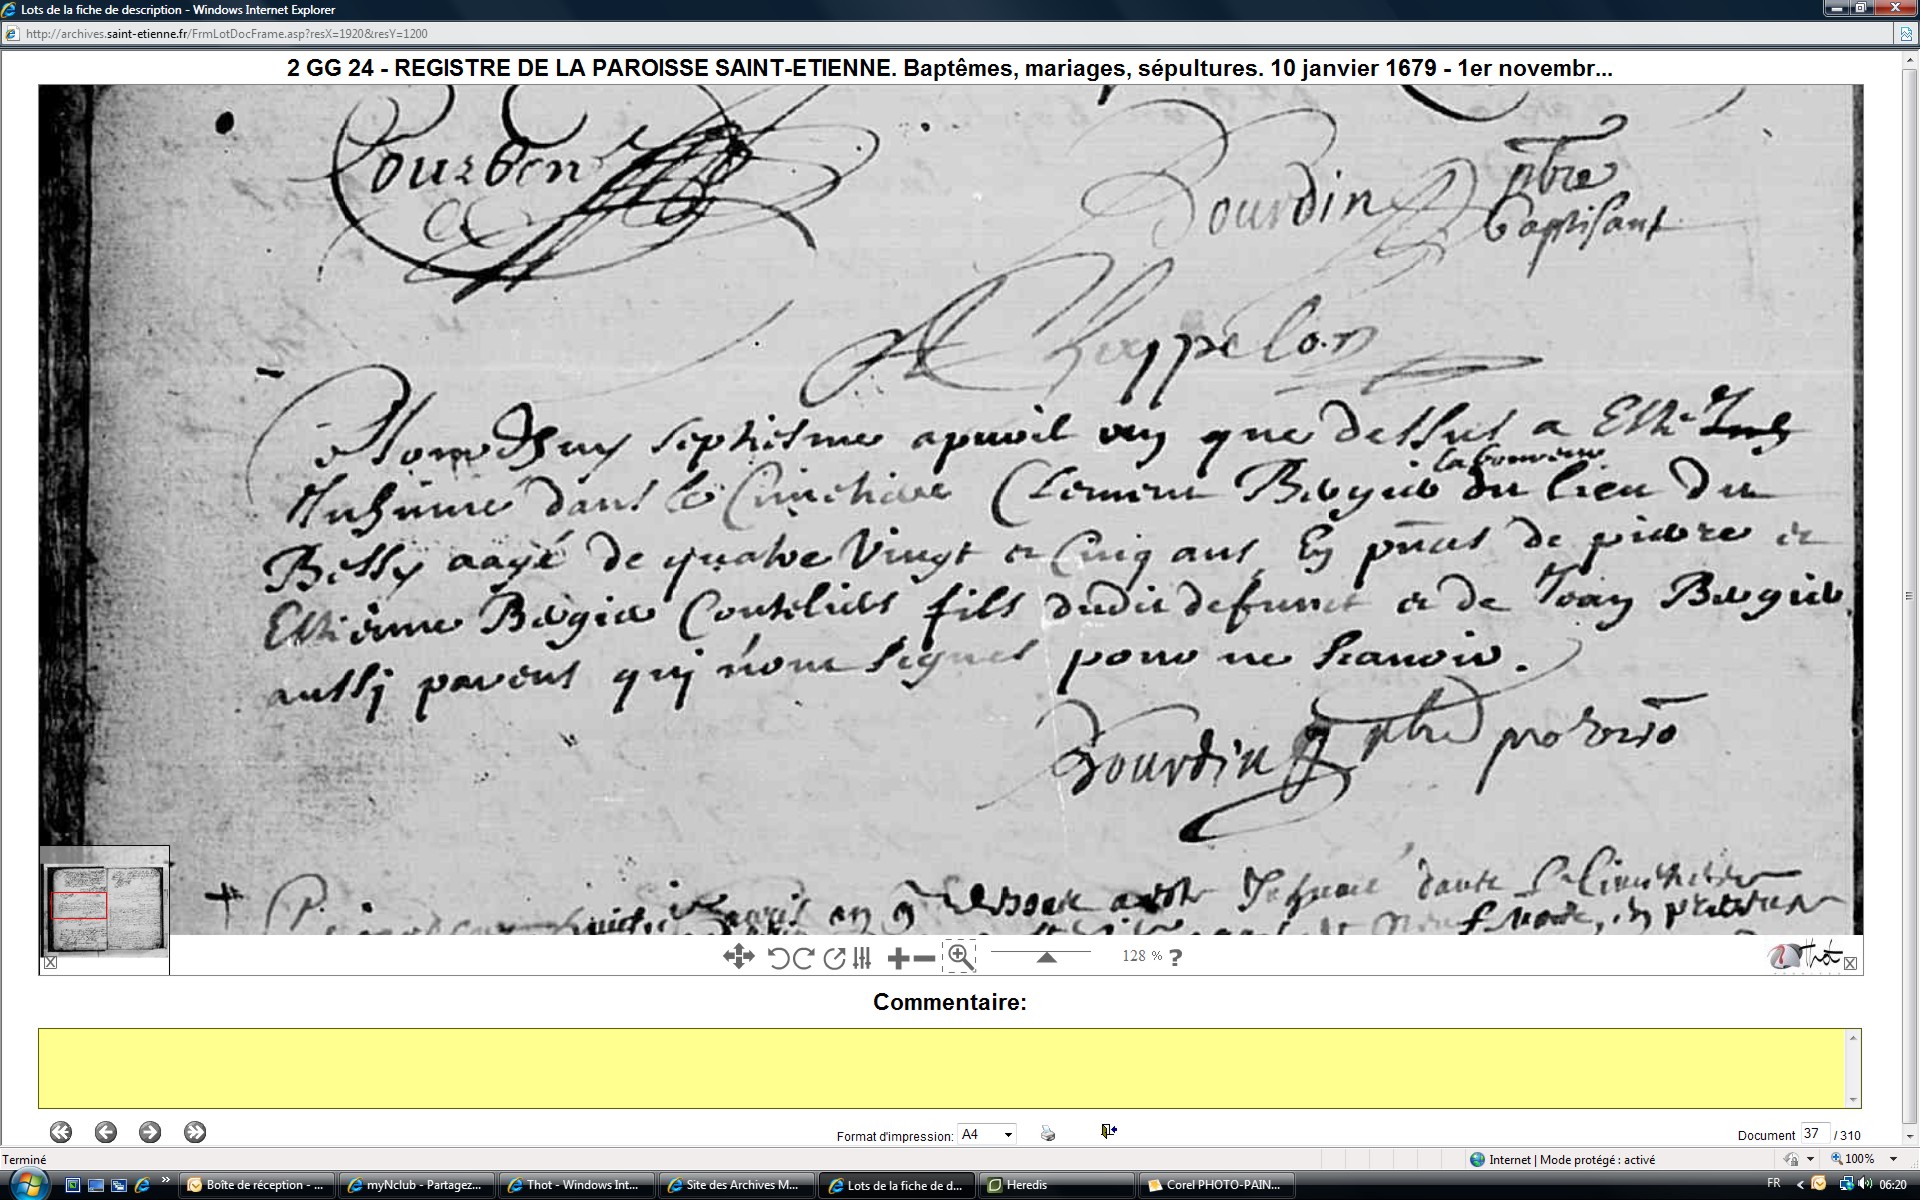 Lots de la fiche de description - Windows Internet Explorer
http://archives.saint-etienne.fr/FrmLotDocFrame.asp?resX=1920&resY=1200
2 GG 24 - REGISTRE DE LA PAROISSE SAINT-ETIENNE. Baptêmes, mariages, sépultures. 10 janvier 1679 - 1er novembr...
Courbon
Dourdin ptre
baptisant
Chappelon
septiesme apvril an que dessus a Esté
Inhumé dans le Cimetiere Clement du lieu du
laboureur
Bessy aagé de quatre Vingt et Cinq ans En pnces de pierre et
Esthienne Coutelier fils dudit defunct et de Jean
aussy parent qui n'ont signes pour ne scavoir.
Dourdin ptre
Commentaire:
128 % ?
Thot
Format d'impression: A4
Document 37 / 310
Terminé
Internet | Mode protégé : activé
100%
Boîte de réception - ...
myNclub - Partagez...
Thot - Windows Int...
Site des Archives M...
Lots de la fiche de d...
Heredis
Corel PHOTO-PAIN...
FR
06:20